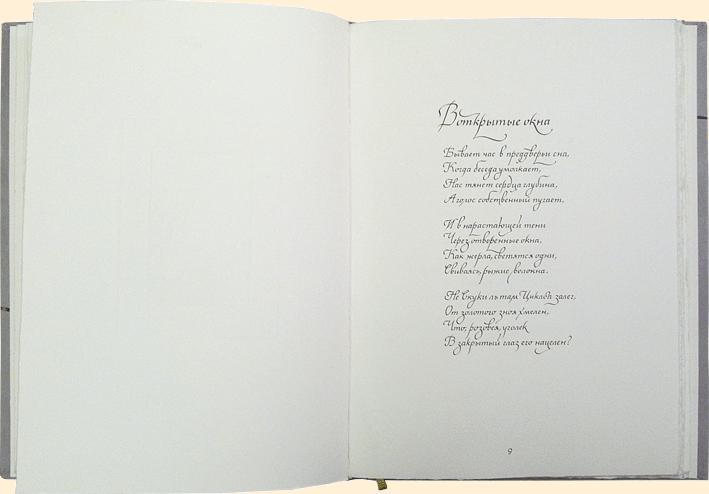 В открытые окна
Бывает час в преддверьи сна,
Когда беседа умолкает,
Нас тянет сердца глубина,
А голос собственный пугает,
И в нарастающей тени
Через отворенные окна,
Как жерла, светятся одни,
Свиваясь, рыжие волокна.
Не Скуки ль там Циклоп залег,
От золотого зноя хмелен,
Что, розовея, уголек
В закрытый глаз его нацелен?
9